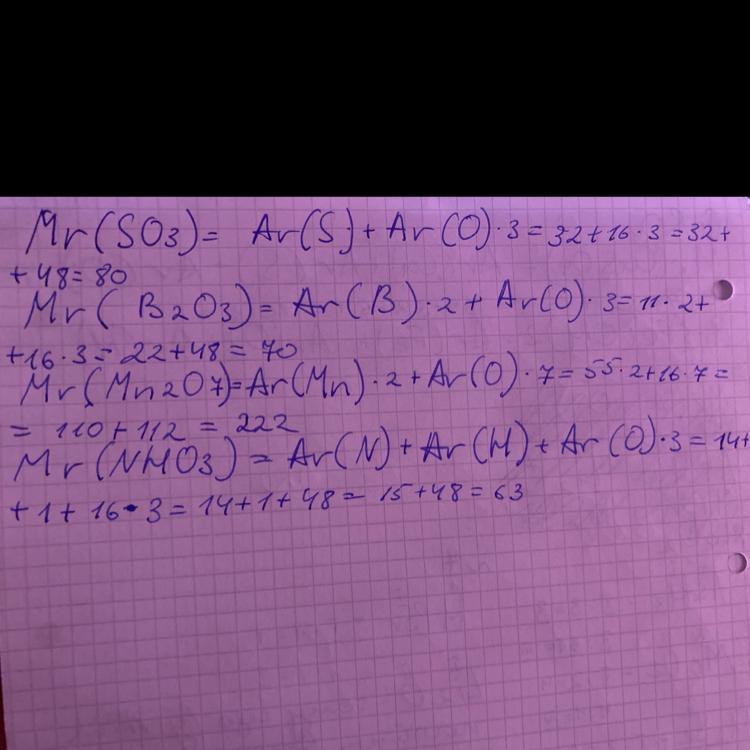 Mr(SO3)= Ar(S)+Ar(O)·3=32+16·3=32+
+48=80
Mr(B2O3)=Ar(B)·2+Ar(O)·3=11·2+
+16·3=22+48=70
Mr(Mn2O7)=Ar(Mn)·2+Ar(O)·7=55·2+16·7=
= 110+112 = 222
Mr(NHO3)=Ar(N)+Ar(H)+Ar(O)·3=14+
+1+16·3=14+1+48=15+48=63